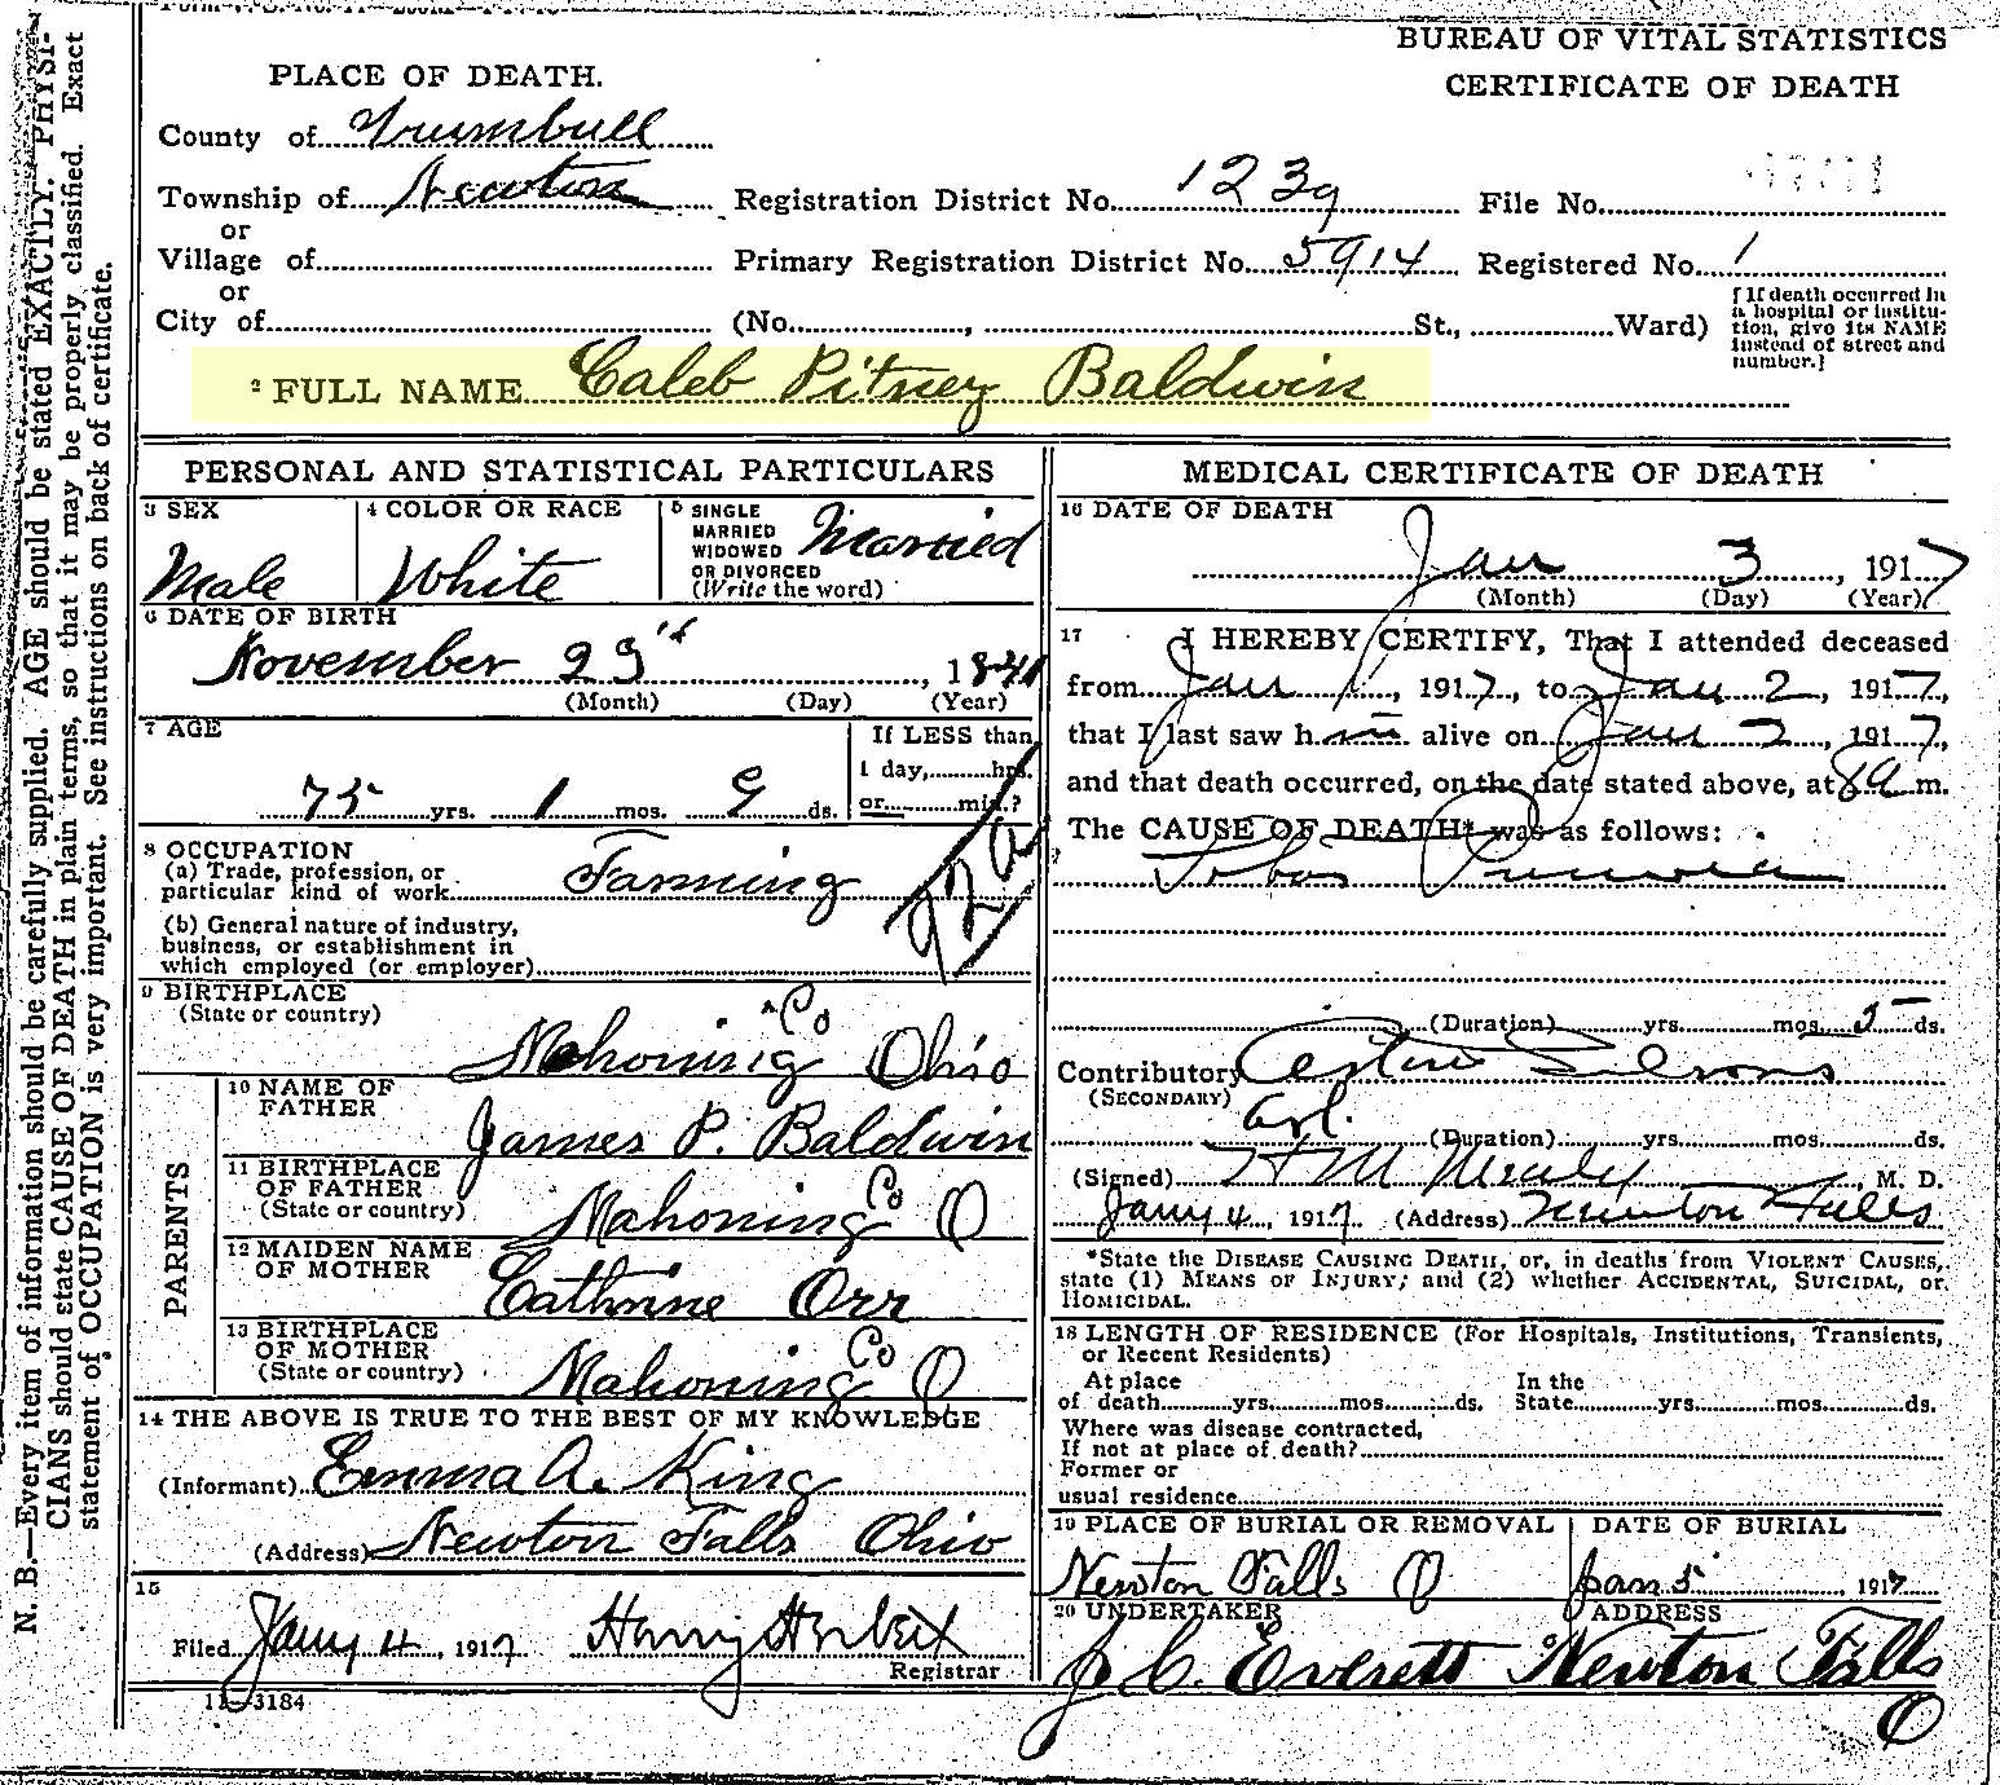 BUREAU OF VITAL STATISTICS
CERTIFICATE OF DEATH
PLACE OF DEATH.
County of Trumbull
Township of Newton Registration District No. 1239 File No.
or
Village of Primary Registration District No. 5914 Registered No. 1
or
City of (No. , St., Ward)
[If death occurred in
a hospital or institu-
tion, give its NAME
instead of street and
number.]
2 FULL NAME Caleb Pitney Baldwin
PERSONAL AND STATISTICAL PARTICULARS
3 SEX
Male
4 COLOR OR RACE
White
5 SINGLE
MARRIED
WIDOWED
OR DIVORCED
(Write the word)
Married
6 DATE OF BIRTH
November 23 , 1841
(Month) (Day) (Year)
7 AGE
75 yrs. 1 mos. 9 ds.
If LESS than
1 day, hrs.
or min.?
8 OCCUPATION
(a) Trade, profession, or
particular kind of work Farming
(b) General nature of industry,
business, or establishment in
which employed (or employer)
92a
9 BIRTHPLACE
(State or country)
Mahoning Co Ohio
PARENTS
10 NAME OF
FATHER
James P. Baldwin
11 BIRTHPLACE
OF FATHER
(State or country)
Mahoning Co O
12 MAIDEN NAME
OF MOTHER
Cathrine Orr
13 BIRTHPLACE
OF MOTHER
(State or country)
Mahoning Co O
14 THE ABOVE IS TRUE TO THE BEST OF MY KNOWLEDGE
(Informant) Emma A. King
(Address) Newton Falls Ohio
15
Filed Jany 4, 1917 Harry Herbert
Registrar
11-3184
MEDICAL CERTIFICATE OF DEATH
16 DATE OF DEATH
Jan 3, 1917
(Month) (Day) (Year)
17 I HEREBY CERTIFY, That I attended deceased
from Jan 1, 1917, to Jan 2, 1917,
that I last saw h im alive on Jan 2, 1917,
and that death occurred, on the date stated above, at 8 a m.
The CAUSE OF DEATH* was as follows:
Lobar Pneumonia
(Duration) yrs. mos. 5 ds.
Contributory
(SECONDARY)
(Duration) yrs. mos. ds.
(Signed) H M , M. D.
Jany 4, 1917 (Address) Newton Falls
*State the DISEASE CAUSING DEATH, or, in deaths from VIOLENT CAUSES,
state (1) MEANS OF INJURY; and (2) whether ACCIDENTAL, SUICIDAL, or
HOMICIDAL.
18 LENGTH OF RESIDENCE (For Hospitals, Institutions, Transients,
or Recent Residents)
At place In the
of death yrs. mos. ds. State yrs. mos. ds.
Where was disease contracted,
If not at place of death?
Former or
usual residence
19 PLACE OF BURIAL OR REMOVAL
Newton Falls O
DATE OF BURIAL
Jan 5 1917
20 UNDERTAKER
J. C. Everett
ADDRESS
Newton Falls
O
N. B.—Every item of information should be carefully supplied. AGE should be stated EXACTLY. PHYSI-
CIANS should state CAUSE OF DEATH in plain terms, so that it may be properly classified. Exact
statement of OCCUPATION is very important. See instructions on back of certificate.